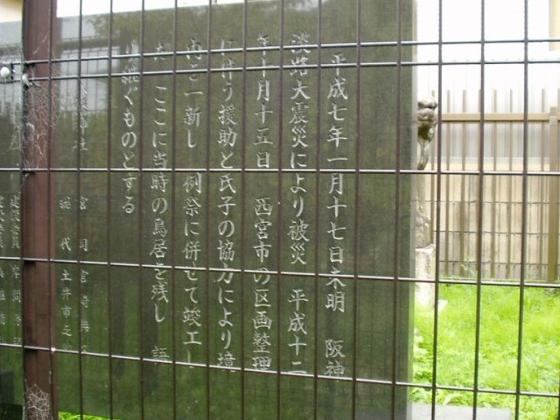 平成七年一月十七日未明 阪神
淡路大震災により被災 平成十二
年十月十五日 西宮市の区画整理
に伴う援助と氏子の協力により境
内を一新し 例祭に併せて竣工し
た ここに当時の鳥居を残し 語
り継ぐものとする
神社
宮司 宮崎
総代 土井市之
建設委員